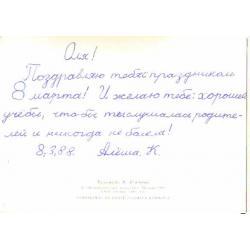 Оля!
Поздравляю тебя с праздником
8 марта! И желаю тебе: хорошей
учёбы, что-бы ты слушалась родите-
лей и никогда не болела!
8,3,88. Алёша. К.